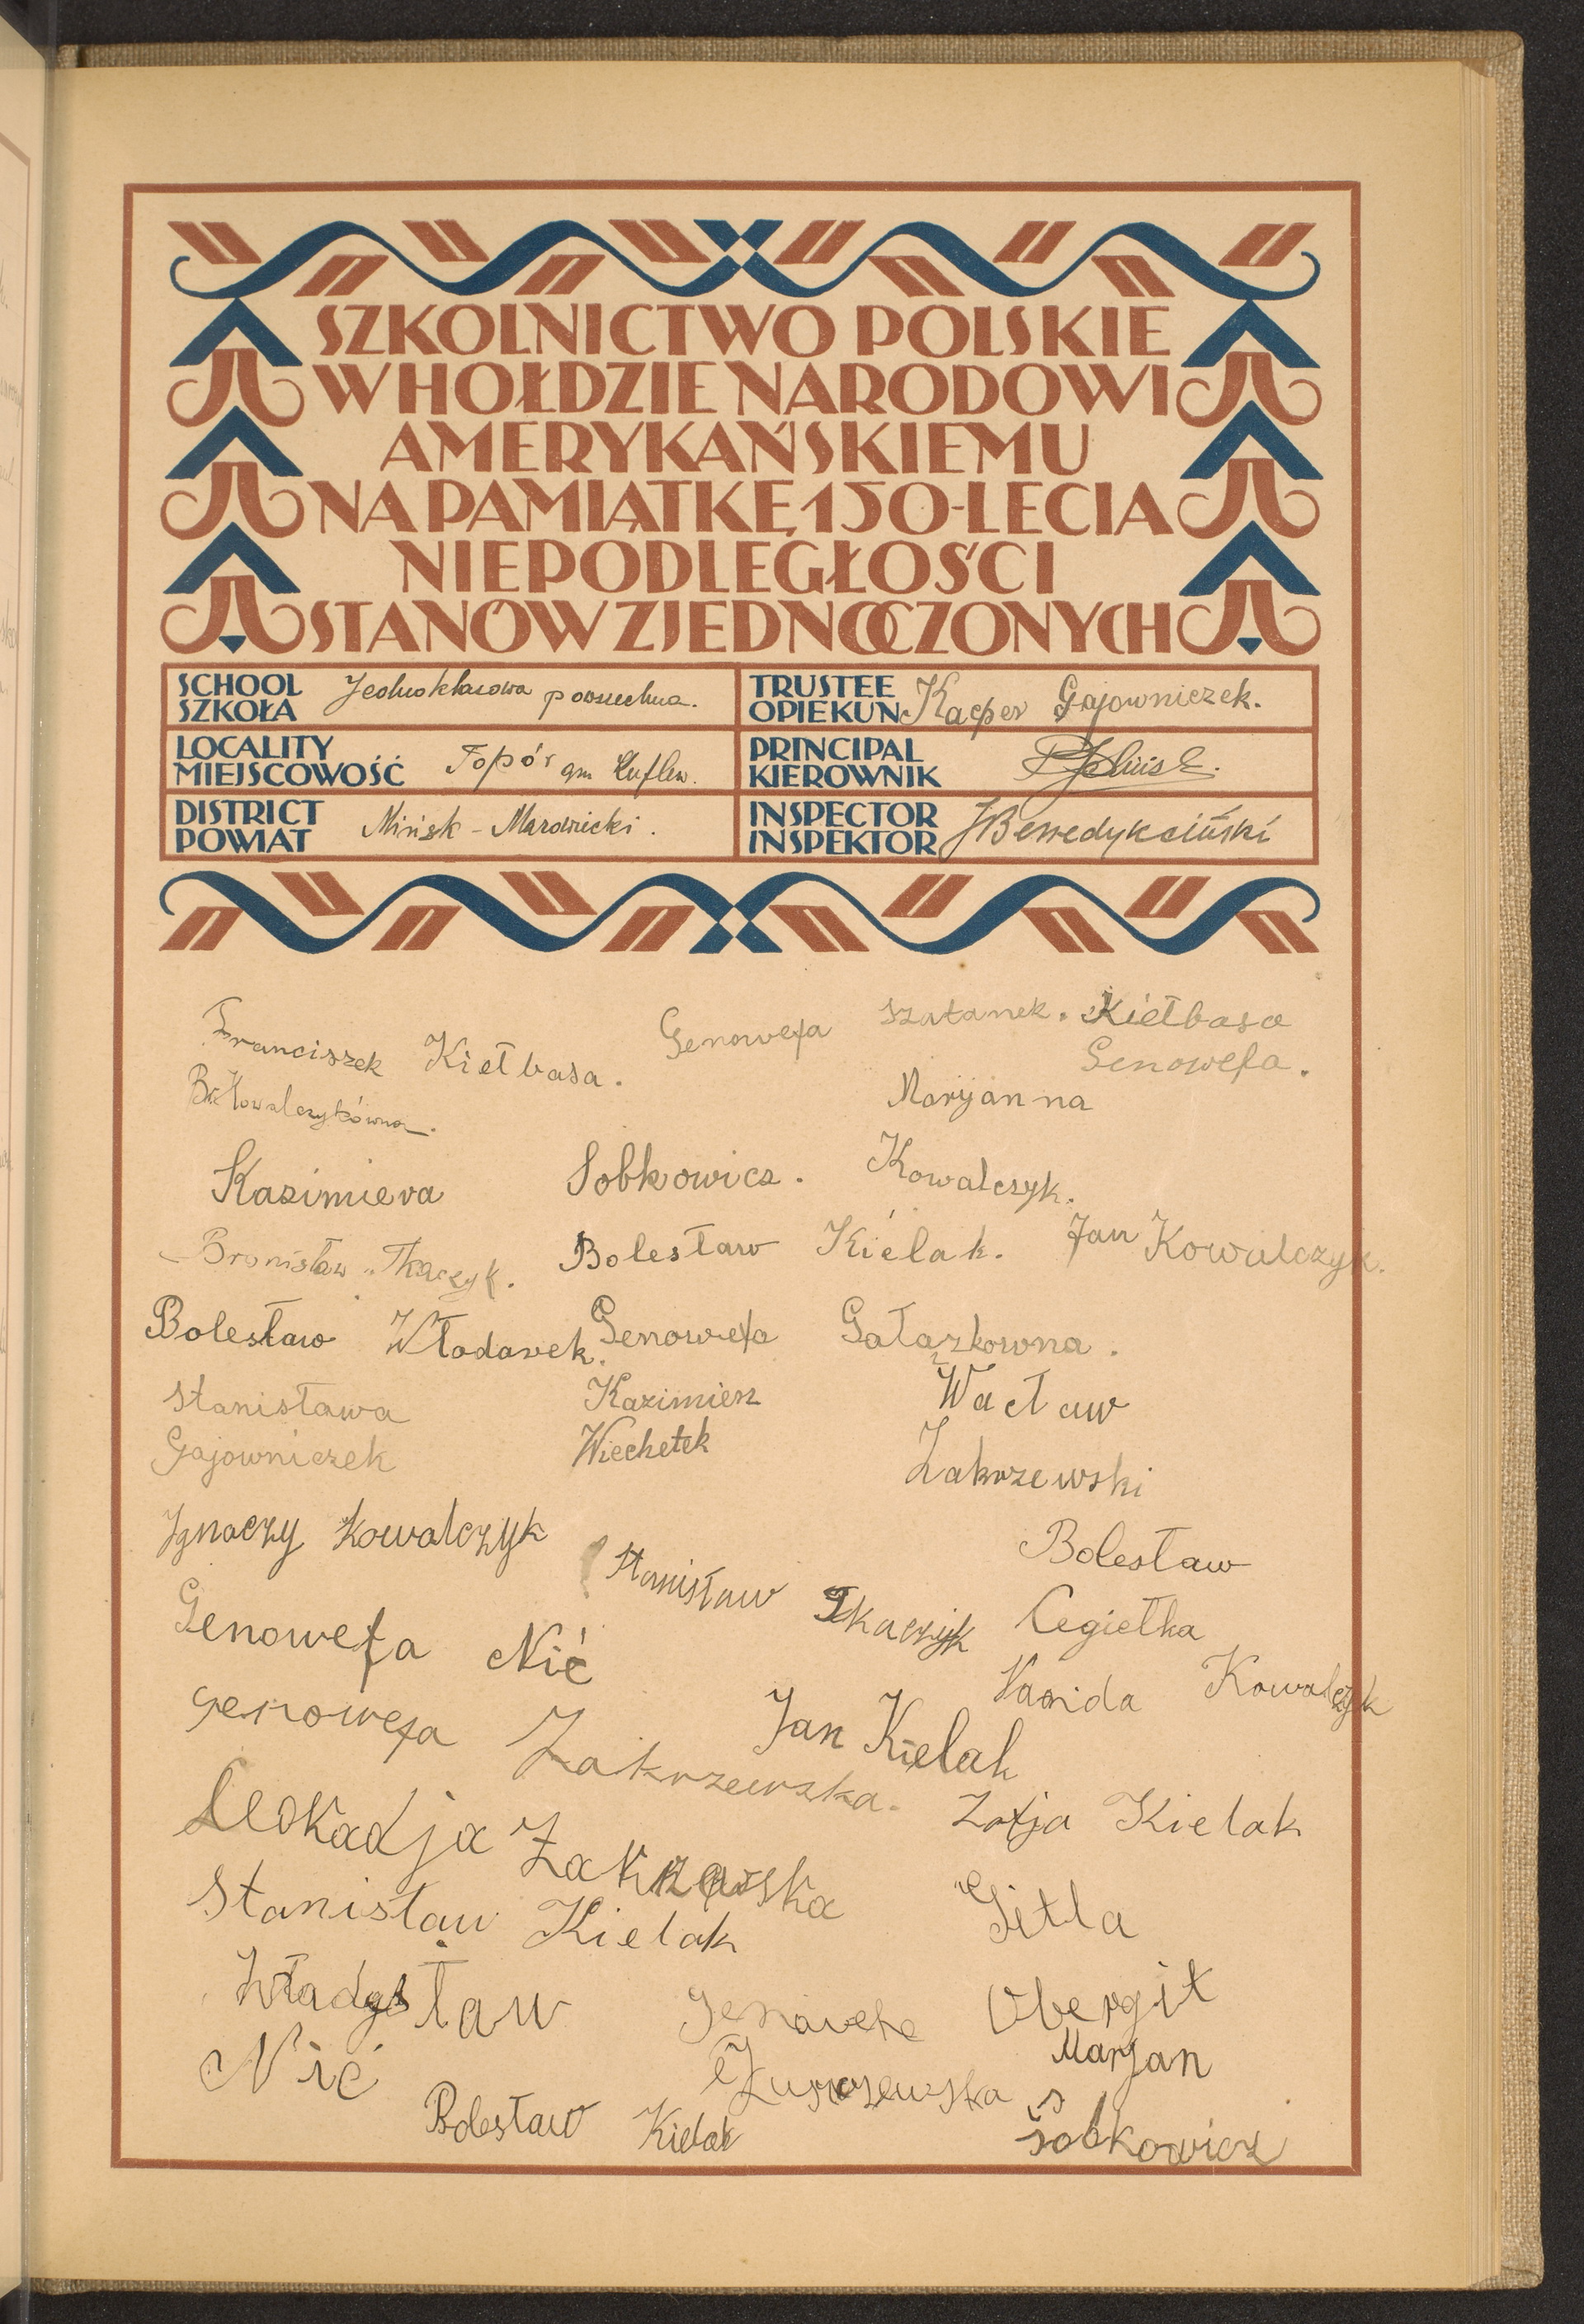 SZKOLNICTWO POLSKIE
W HOŁDZIE NARODOWI
AMERYKAŃSKIEMU
NA PAMIĄTKĘ 150-LECIA
NIEPODLEGŁOŚCI
STANÓW ZJEDNOCZONYCH
SCHOOL
SZKOŁA
Jednoklasowa powszechna.
TRUSTEE
OPIEKUN
Kacper Gajowniczek.
LOCALITY
MIEJSCOWOŚĆ
Topór gm Łuflew.
PRINCIPAL
KIEROWNIK
DISTRICT
POWIAT
Mińsk - Mazowiecki.
INSPECTOR
INSPEKTOR
Franciszek Kiełbasa.
Genowefa Szatanek.
Kiełbasa
Genowefa.
Kowalczykówna.
Marijanna
Kowalczyk.
Kazimiera Sobkowicz.
Bronisław Tkaczyk.
Bolesław Kielak.
Jan Kowalczyk.
Bolesław Włodarek.
Genowefa Gałązkowna.
Stanisława
Gajowniczek
Kazimierz
Wiechetek
Wacław
Zakrzewski
Ignaczy Kowalczyk
Stanisław Tkaczyk
Bolesław
Cegiełka
Genowefa Nić
Wanda Kowalczyk
Genowefa Zakrzewska.
Jan Kielak
Zofja Kielak
Leokadja Zakrzewska
Stanisław Kielak
Gitla
Obergit
Władysław
Nić
Genowefa
Marjan
Sobkowicz
Bolesław Kielak